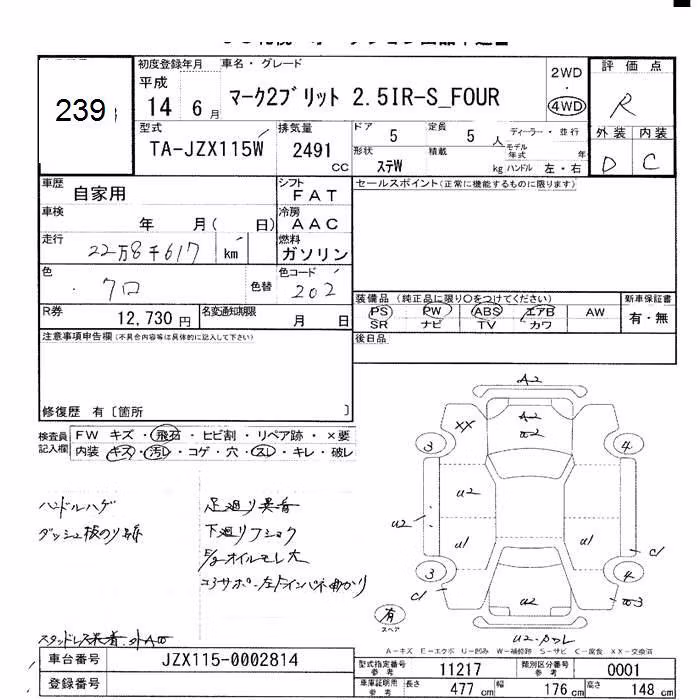 239
初度登録年月
平成
14 6 月
車名・グレード
マーク2ブリット 2.5IR-S_FOUR
2WD
4WD
評価点
R
外装 内装
D C
型式
TA-JZX115W
排気量
2491 CC
ドア 5
定員 5 人
ディーラー・並行
モデル年式 年
形状 ステW
積載 kg
ハンドル 左・右
車歴 自家用
シフト FAT
車検 年 月( 日)
冷房 AAC
走行 22万8千617 km
燃料 ガソリン
色 クロ 色替
色コード 202
R券 12,730 円
名変通知期限 月 日
セールスポイント(正常に機能するものに限ります)
装備品 (純正品に限り○をつけてください)
PS PW ABS エアB AW
SR ナビ TV カワ
新車保証書
有・無
後日品
注意事項申告欄 (不具合内容等は具体的に記入して下さい)
修復歴 有〔箇所 〕
検査員記入欄
FW キズ・飛石・ヒビ割・リペア跡・×要
内装 キズ・汚レ・コゲ・穴・スレ・キレ・破レ
ハンドルハゲ
ダッシュ板のり跡
足廻り異音
下廻りフショク
E/gオイルモレ大
コアサポート左
A2
A2
U2
XX
3
4
U2
U2
U1
U1
C1
3
4
C1
U2
U3
有
スペア
U2・ワレ
A-キズ E-エクボ U-凹み W-補修跡 S-サビ C-腐食 XX-交換済
車台番号 JZX115-0002814
登録番号
型式指定番号 参考 11217
類別区分番号 参考 0001
車庫証明用 参考 長さ 477 cm 幅 176 cm 高さ 148 cm